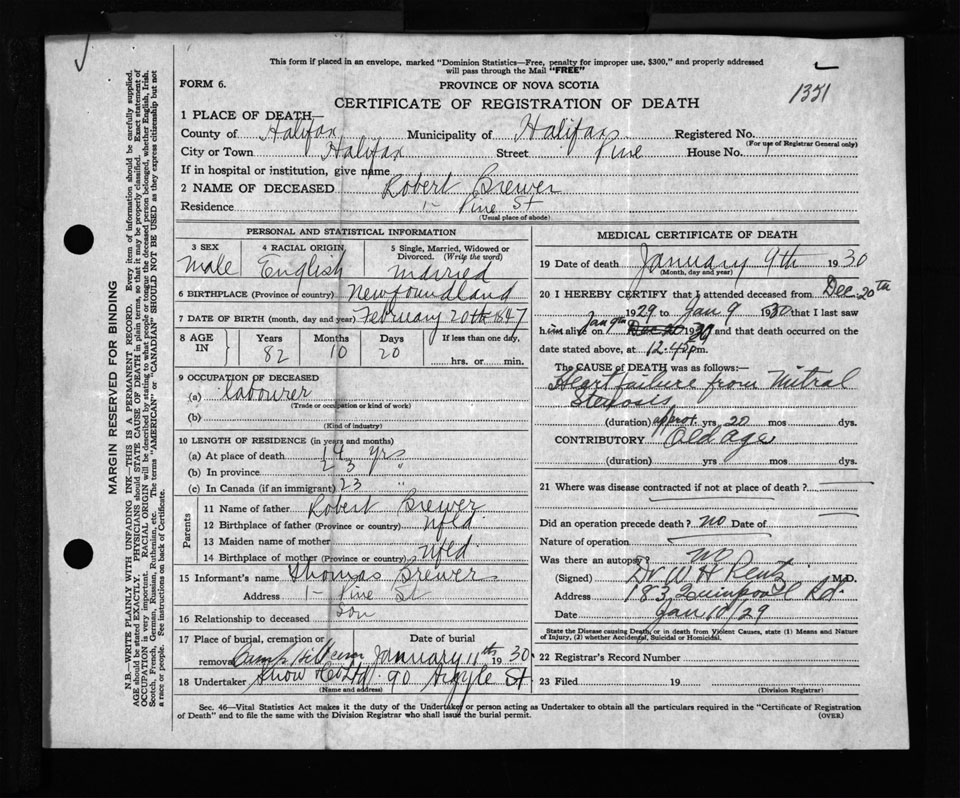 This form if placed in an envelope, marked "Dominion Statistics—Free, penalty for improper use, $300," and properly addressed
will pass through the Mail "FREE"
FORM 6.
PROVINCE OF NOVA SCOTIA
1321
CERTIFICATE OF REGISTRATION OF DEATH
1 PLACE OF DEATH
County of Halifax Municipality of Halifax Registered No.
(For use of Registrar General only)
City or Town Halifax Street Pine House No. 1
If in hospital or institution, give name
2 NAME OF DECEASED Robert Brewer
Residence 1- Pine St
(Usual place of abode)
PERSONAL AND STATISTICAL INFORMATION
3 SEX 4 RACIAL ORIGIN 5 Single, Married, Widowed or Divorced. (Write the word)
Male English Married
6 BIRTHPLACE (Province or country) Newfoundland
7 DATE OF BIRTH (month, day and year) February 20th 1847
8 AGE IN Years Months Days If less than one day,
82 10 20 hrs. or min.
9 OCCUPATION OF DECEASED
(a) labourer
(Trade or occupation or kind of work)
(b)
(Kind of industry)
10 LENGTH OF RESIDENCE (in years and months)
(a) At place of death 14 yrs
(b) In province 23 "
(c) In Canada (if an immigrant) 23 "
Parents
11 Name of father Robert Brewer
12 Birthplace of father (Province or country) Nfld.
13 Maiden name of mother
14 Birthplace of mother (Province or country) Nfld.
15 Informant's name Thomas Brewer
Address 1- Pine St
16 Relationship to deceased Son
17 Place of burial, cremation or removal Date of burial
Camp Hill January 11th 1930
18 Undertaker Snow Co Ltd. 90 Argyle St
(Name and address)
MEDICAL CERTIFICATE OF DEATH
19 Date of death January 9th 1930
(Month, day and year)
20 I HEREBY CERTIFY that I attended deceased from Dec 20th
1929 to Jan 9 1930 that I last saw
him alive on Jan 9th 1930 and that death occurred on the
date stated above, at 12.45 p.m.
The CAUSE of DEATH was as follows:—
Heart failure from Mitral
Stenosis
(duration) approx. yrs. 20 mos dys.
CONTRIBUTORY Old age
(duration) yrs mos dys.
21 Where was disease contracted if not at place of death?
Did an operation precede death? no Date of
Nature of operation
Was there an autopsy? no
(Signed) Dr W H M.D.
Address 183 Quinpool Rd.
Date Jan 10/29
State the Disease causing Death, or in death from Violent Causes, state (1) Means and Nature
of Injury, (2) whether Accidental, Suicidal or Homicidal.
22 Registrar's Record Number
23 Filed 19
(Division Registrar)
Sec. 46—Vital Statistics Act makes it the duty of the Undertaker or person acting as Undertaker to obtain all the particulars required in the "Certificate of Registration
of Death" and to file the same with the Division Registrar who shall issue the burial permit.
(OVER)
MARGIN RESERVED FOR BINDING
N.B.—WRITE PLAINLY WITH UNFADING INK—THIS IS A PERMANENT RECORD. Every item of information should be carefully supplied.
AGE should be stated EXACTLY. PHYSICIANS should STATE CAUSE OF DEATH in plain terms, so that it may be properly classified. Exact statement of
OCCUPATION is very important. RACIAL ORIGIN will be described by stating to what people or tongue the deceased person belonged, whether English, Irish,
Scotch, French, German, Russian, Ruthenian, etc. The terms "AMERICAN" or "CANADIAN" SHOULD NOT BE USED as they express citizenship but not
a race or people. See instructions on back of Certificate.